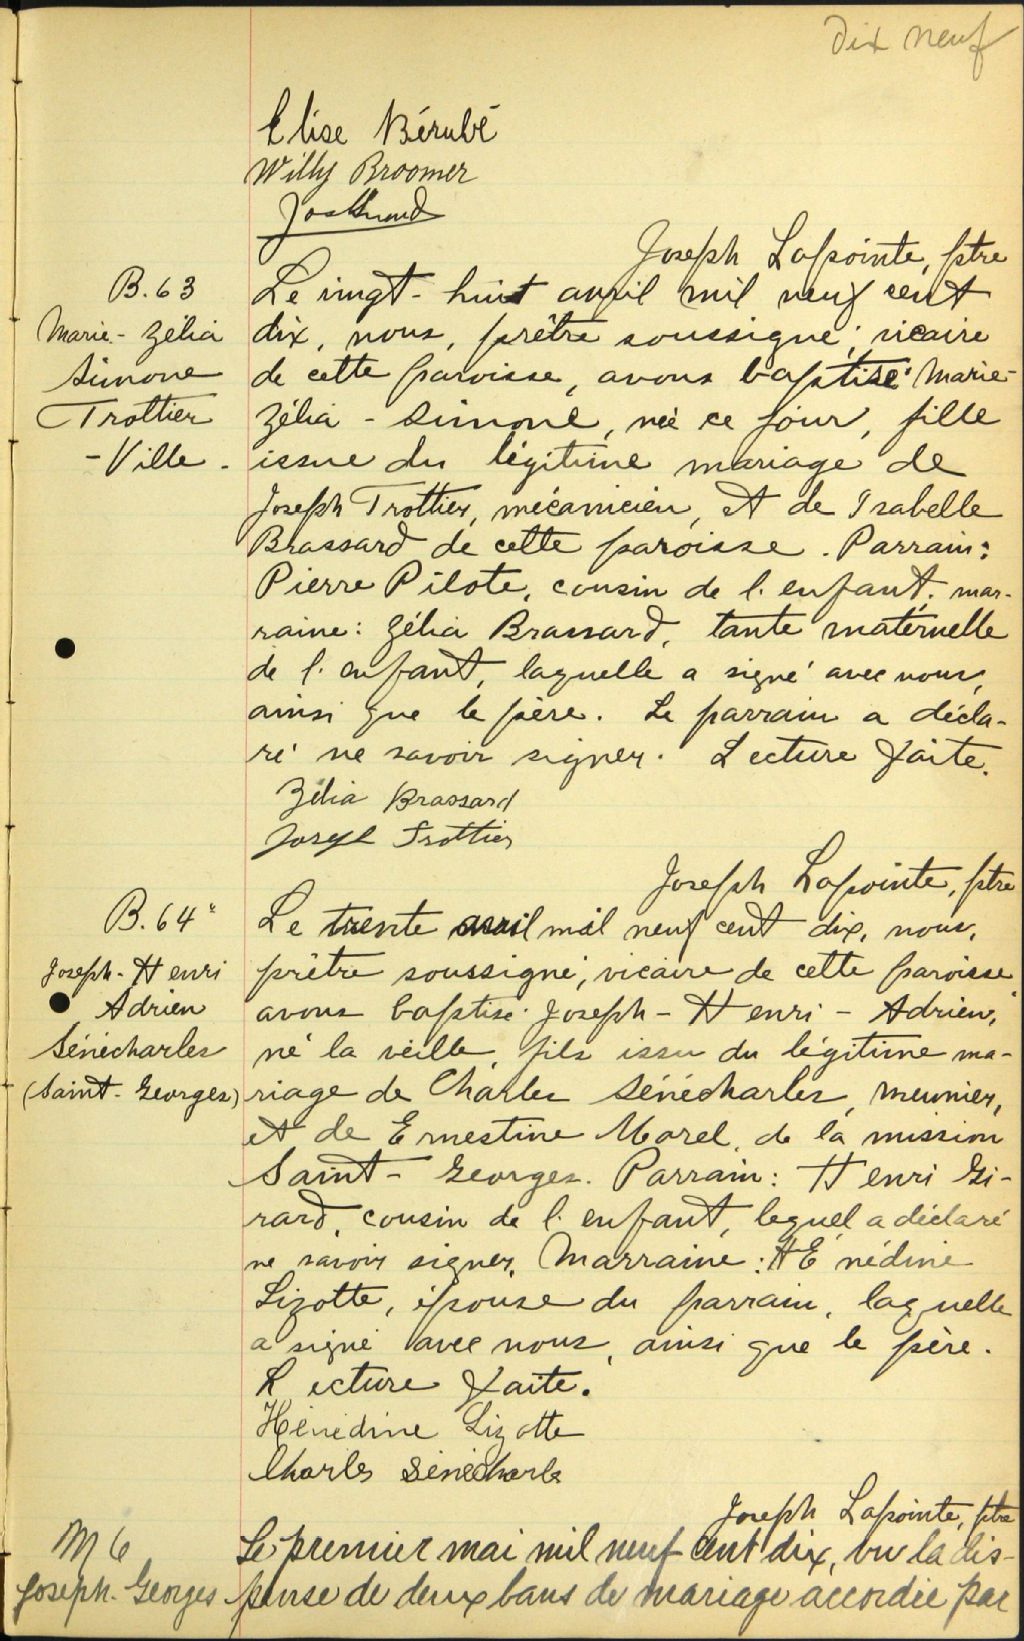 dix neuf
Elise Bérubé
Willy Broomer
Joseph Lapointe, ptre
B. 63
Marie-Zélia
Simone
Trottier
-Ville-
Le vingt-huit avril mil neuf cent
dix, nous, prêtre soussigné, vicaire
de cette paroisse, avons baptisé Marie-
Zélia-Simone, née ce jour, fille
issue du légitime mariage de
Joseph Trottier, mécanicien, et de Isabelle
Brassard de cette paroisse. Parrain:
Pierre Pilote, cousin de l'enfant; mar-
raine: Zélia Brassard, tante maternelle
de l'enfant, laquelle a signé avec nous,
ainsi que le père. Le parrain a décla-
ré ne savoir signer. Lecture faite.
Zélia Brassard
Joseph Trottier
Joseph Lapointe, ptre
B. 64
Joseph-Henri
Adrien
Sénécharles
(Saint-Georges)
Le trente avril mil neuf cent dix, nous,
prêtre soussigné, vicaire de cette paroisse,
avons baptisé Joseph-Henri-Adrien,
né la veille, fils issu du légitime ma-
riage de Charles Sénécharles, meunier,
et de Ernestine Morel, de la mission
Saint-Georges. Parrain: Henri Gi-
rard, cousin de l'enfant, lequel a déclaré
ne savoir signer. Marraine: Hénédine
Lizotte, épouse du parrain, laquelle
a signé avec nous, ainsi que le père.
Lecture faite.
Hénédine Lizotte
Charles Sénécharle
Joseph Lapointe, ptre
M 6
Joseph-Georges
Le premier mai mil neuf cent dix, vu la dis-
pense de deux bans de mariage accordée par